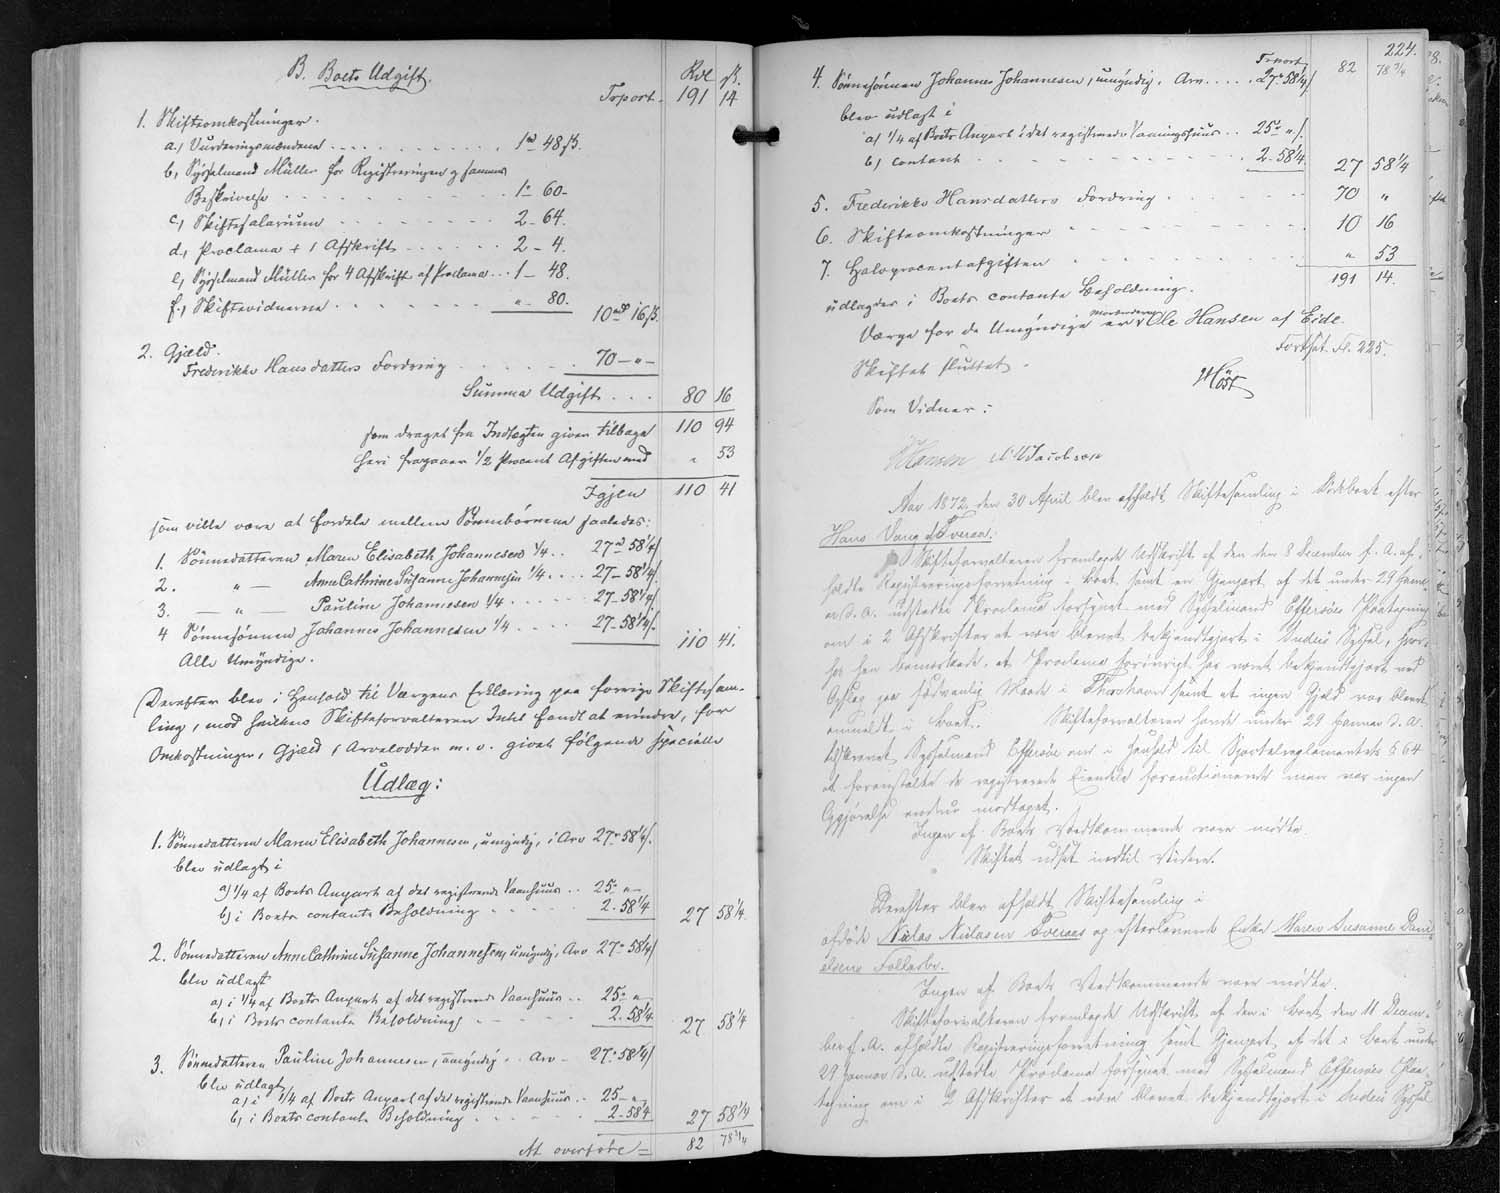 B. Boets Udgift.
Rdl ß.
Trport. 191 14
1. Skifteomkostninger.
a, Vurderingsmændene 1rd 48ß.
b, Sysselmand Müller for Registreringen og sammes
Beskrivelse 1- 60-
c, Skiftesalarium 2- 64.
d, Proclama + 1 Afskrift 2- 4.
e, Sysselmand Müller for 4 Afskrift af Proclama 1- 48.
f, Skiftevidnerne " 80. 10rd 16ß.
2. Gjæld.
Frederikke Hansdatters Fordring 70 - " -
Summa Udgift 80 16
som draget fra Indtægten giver tilbage 110 94
heri fragaaer 1/2 Procent Afgiften med " 53
Igjen 110 41
som ville være at fordele mellem Sønnebørnene saaledes:
1. Sønnedatteren Maren Elisabeth Johannesen 1/4 27rd 58 1/4 ß
2. " Anne Cathrine Susanne Johannesen 1/4 27- 58 1/4 ß
3. " Pauline Johannesen 1/4 27- 58 1/4 ß
4 Sønnesønnen Johannes Johannesen 1/4 27- 58 1/4 ß. 110 41.
Alle Umyndige.
Derefter blev i Henhold til Værgens Erklæring paa forrige Skiftesam-
ling, mod hvilken Skifteforvalteren Intet fandt at erindre, for
Omkostninger, Gjæld, Arvelodder m. v. givet følgende specielle
Udlæg:
1. Sønnedatteren Maren Elisabeth Johannesen, umyndig, i Arv 27- 58 1/4 ß.
blev udlagt i
a) 1/4 af Boets Anpart af det registrerede Vaanhuus 25- "-
b) i Boets contante Beholdning 2- 58 1/4 27 58 1/4
2. Sønnedatteren Anne Cathrine Susanne Johannesen, umyndig, Arv 27- 58 1/4 ß
blev udlagt
a) i 1/4 af Boets Anpart af det registrerede Vaanhuus 25- "-
b, i Boets contante Beholdning 2- 58 1/4 27 58 1/4
3. Sønnedatteren Pauline Johannesen, umyndig, Arv 27- 58 1/4 ß
blev udlagt
a, i 1/4 af Boets Anpart af det registrerede Vaanhuus 25- "-
b, i Boets contante Beholdning 2- 58 1/4 27 58 1/4
At overføre = 82 78 3/4
224.
Trport 82 78 3/4
4. Sønnesønnen Johannes Johannesen, umyndig, Arv 27- 58 1/4 ß
blev udlagt i
a) 1/4 af Boets Anpart i det registrerede Vaaningshuus 25- "
b, contant 2- 58 1/4 27 58 1/4
5. Frederikke Hansdatters Fordring 70 "
6. Skifteomkostninger 10 16
7. Halvprocentafgiften " 53
191 14.
udlagdes i Boets contante Beholdning.
Værge for de Umyndige er Ole Hansen af Eide.
Fortsat Fl. 225.
Skiftet sluttet.
Høst
Som Vidner:
Hansen Jacobsen
Aar 1872, den 30 April blev afholdt Skiftesamling i Dødsboet efter
Hans Vang af Tveraa.
Skifteforvalteren fremlagde Udskrift af den den 8 December f. A. af-
holdte Registreringsforretning i Boet, samt en Gjenpart af det under 29 Janu-
ar d. A. udstedte Proclama forsynet med Sysselmand Effersøes Paategning
om i 2 Afskrifter at være blevet bekjendtgjort i Suderø Syssel, hvor-
hos han bemærkede, at Proclama forøvrigt har været bekjendtgjort ved
Opslag paa sædvanlig Maade i Thorshavn samt at ingen Gjæld var blevet
anmeldt i Boet. Skifteforvalteren havde under 29 Januar d. A.
tilskrevet Sysselmand Effersøe om i Henhold til Sportelreglementets § 64
at foranstalte de registrerede Eiendele forauctionerede men var ingen
Opgjørelse endnu modtaget.
Ingen af Boets Vedkommende vare mødte.
Skiftet udsat indtil Videre.
Derefter blev afholdt Skiftesamling i
afdøde Niclas Niclasen Tveraa og efterlevende Enke Maren Susanne Dani-
elsens Fællesbo.
Ingen af Boets Vedkommende vare mødte.
Skifteforvalteren fremlagde Udskrift af den i Boet den 11 Decem-
ber f. A. afholdte Registreringsforretning samt Gjenpart af det i Boet under
29 Januar d. A. udstedte Proclama forsynet med Sysselmand Effersøes Paa-
tegning om i 2 Afskrifter at være blevet bekjendtgjort i Suderø Syssel